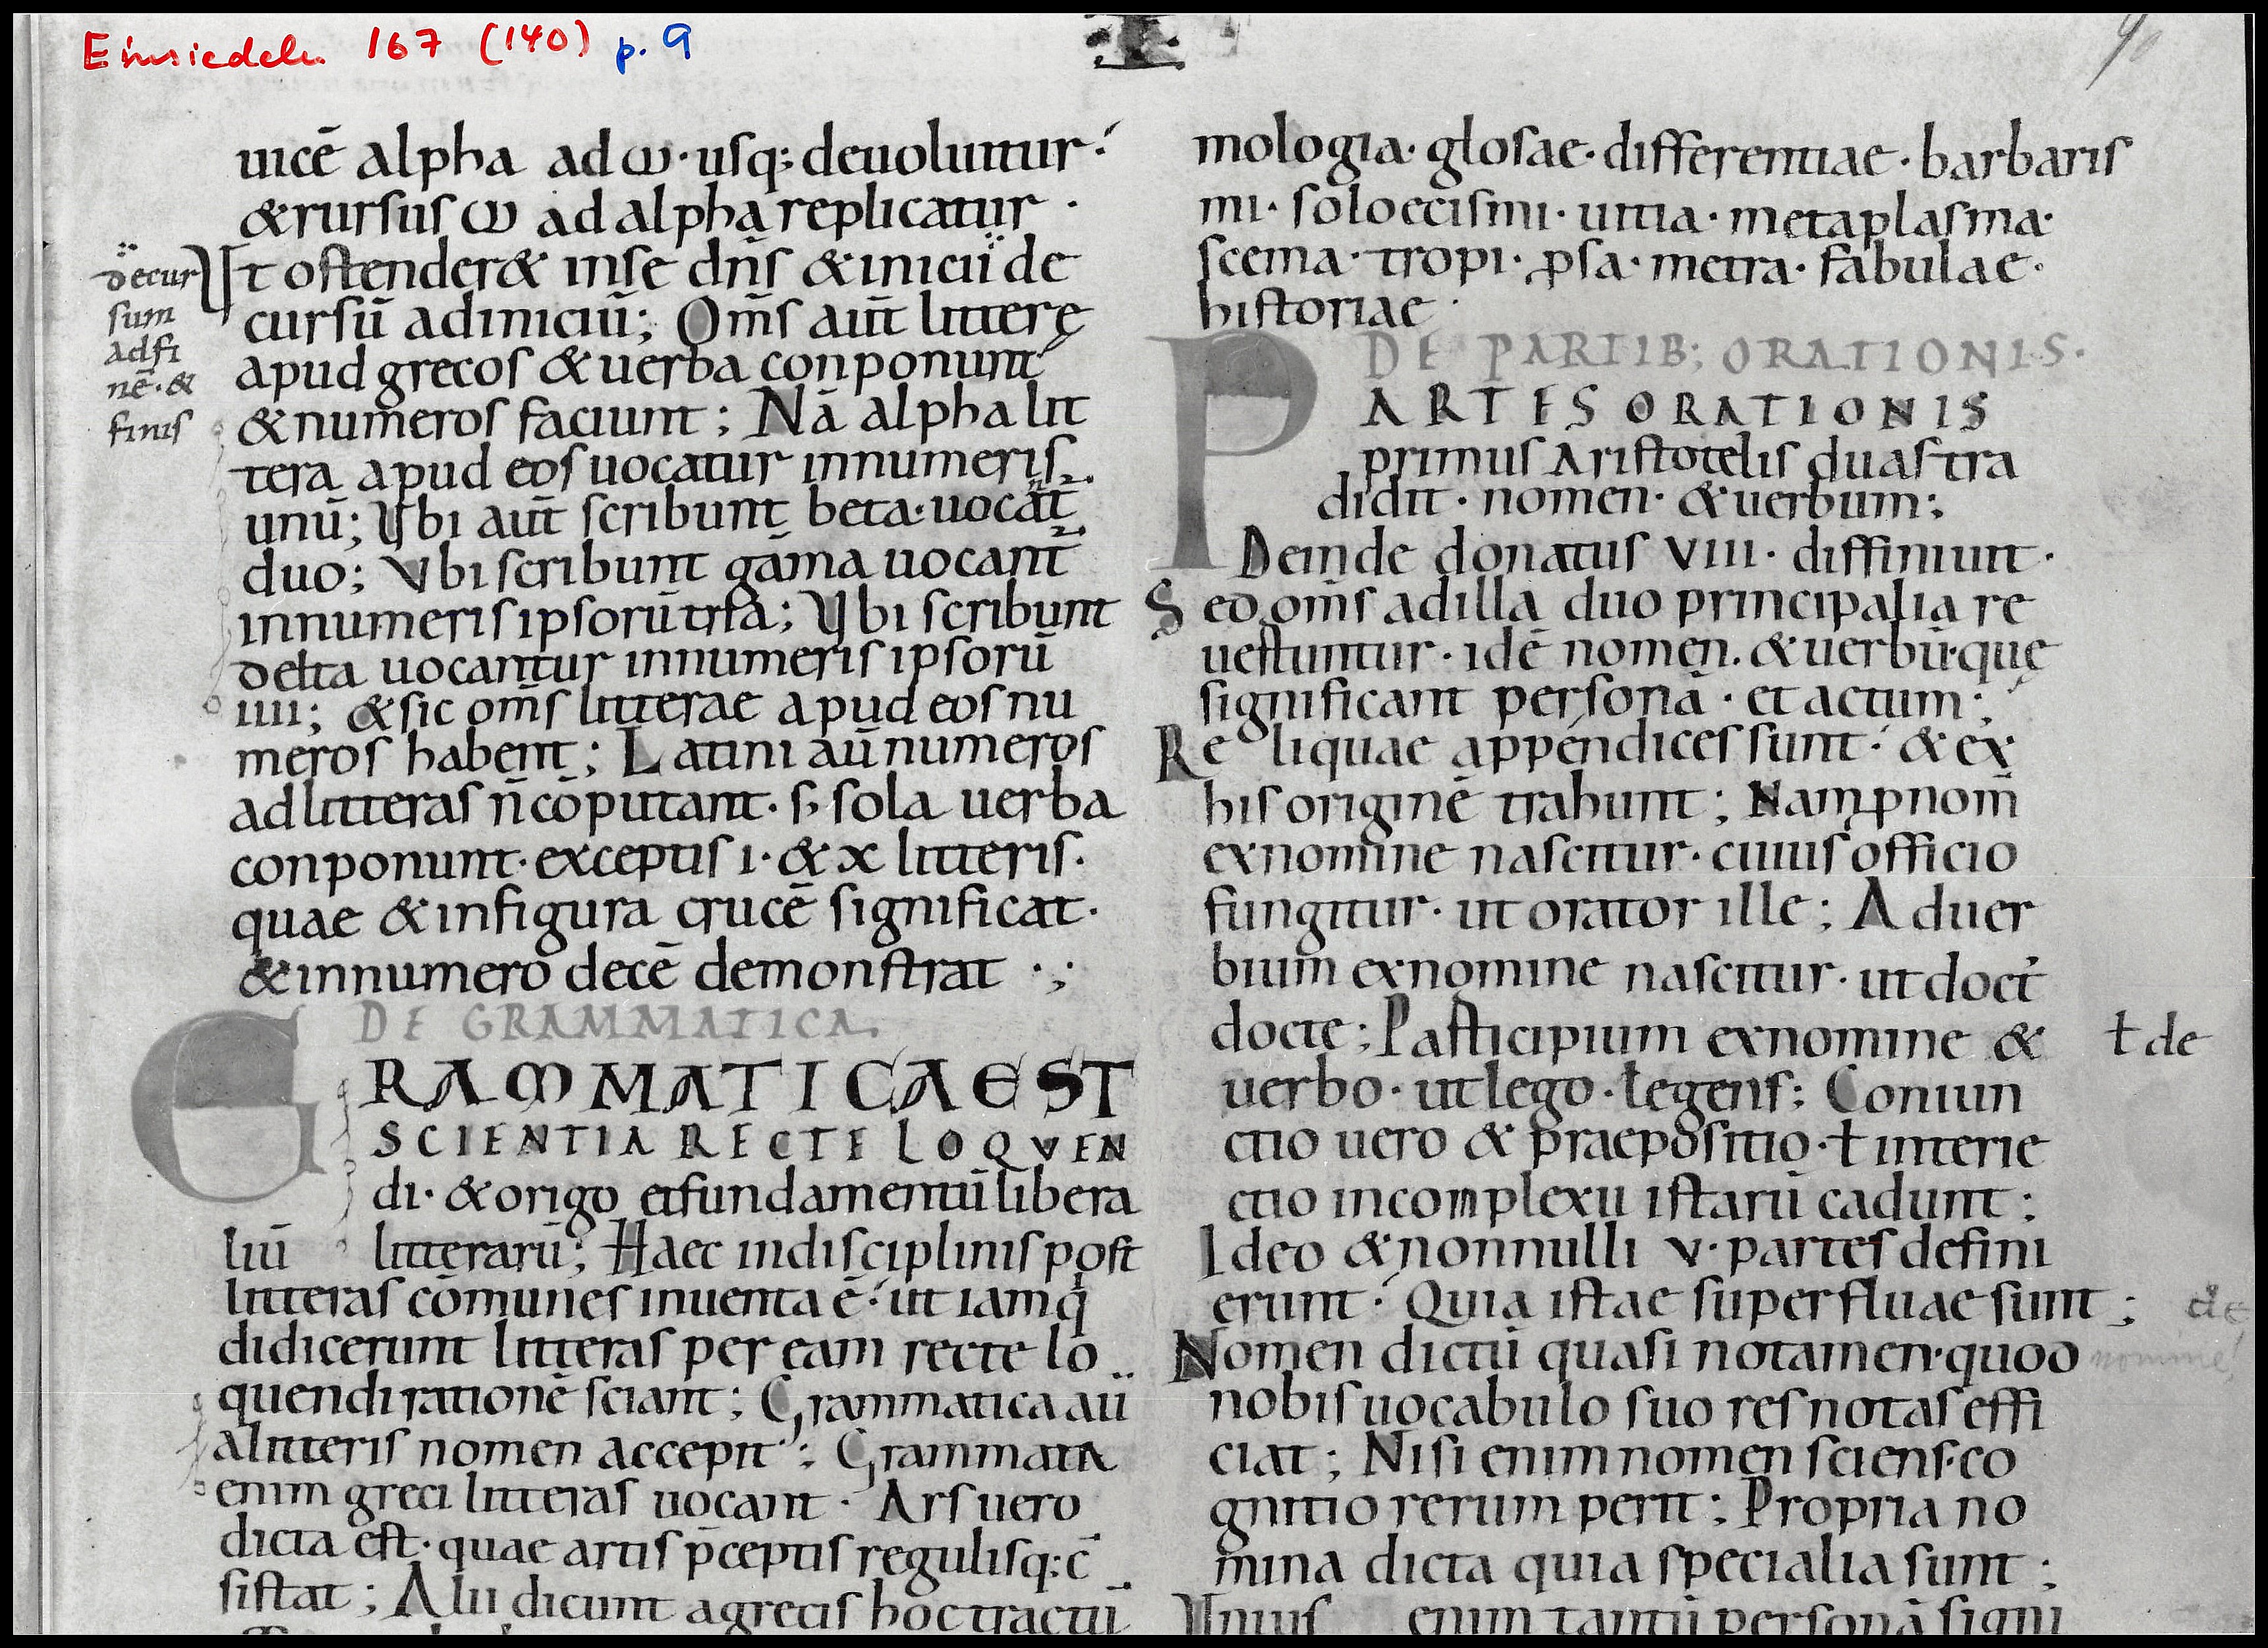 Einsiedeln 167 (140) p. 9
uicē alpha ad ω · usq; deuoluitur ·
& rursus ω ad alpha replicatur ·
Ut ostender& in se dn̄s & inicii de
cursū ad iniciū; Om̄s aut̄ litterę
apud grecos & uerba conponunt
& numeros faciunt; Nā alpha lit
tera apud eos uocatur in numeris
unū; Ubi aut̄ scribunt beta · uocāt
duo; Vbi scribunt gāma uocant̄
in numeris ipsorū tria; Ubi scribunt
delta uocantur in numeris ipsorū
iiii; & sic om̄s litterae apud eos nu
meros habent; Latini aū numeros
ad litteras n̄ cōputant · s; sola uerba
conponunt · exceptis i · & x litteris ·
quae & in figura crucē significat ·
& in numero decē demonstrat ·;
DE GRAMMATICA.
GRAMMATICA EST
SCIENTIA RECTE LOQVEN
di · & origo et fundamentū libera
liū litterarū; Haec in disciplinis post
litteras cōmunes inuenta ē · ut iam q̄
didicerunt litteras per eam recte lo
quendi rationē sciant; Grammatica aū
a litteris nomen accepit; Grammata
enim greci litteras uocant · Ars uero
dicta est · quae artis p̄ceptis regulisq; c̄
sistat; Alii dicunt a grecis hoc tractū
decur
sum
ad fi
nē · &
finis
mologia · glosae · differentiae · barbaris
mi · soloecismi · uitia · metaplasma ·
scema · tropi · ꝓsa · metra · fabulae ·
historiae ·
DE PARTIB; ORATIONIS ·
PARTES ORATIONIS
primus Aristotelis duas tra
didit · nomen · & uerbum;
Deinde donatus VIII · diffiniuit ·
Sed om̄s ad illa duo principalia re
uestuntur · idē nomen · & uerbū · quę
significant personā · et actum;
Reliquae appendices sunt · & ex
his originē trahunt; Nam ꝓnom̄
ex nomine nascitur · cuius officio
fungitur · ut orator ille; Aduer
bium ex nomine nascitur · ut doct᾽
docte; Pasticipium ex nomine &
uerbo · ut lego · legens; Coniun
ctio uero & praepositio · ł interie
ctio in complexū istarū cadunt;
Ideo & nonnulli v · partes defini
erunt · Quia istae superfluae sunt;
Nomen dictū quasi notamen · quod
nobis uocabulo suo res notas effi
ciat; Nisi enim nomen sciens · co
gnitio rerum perit; Propria no
mina dicta quia specialia sunt;
Unius enim tantū personā signi
ł de
de
nomine